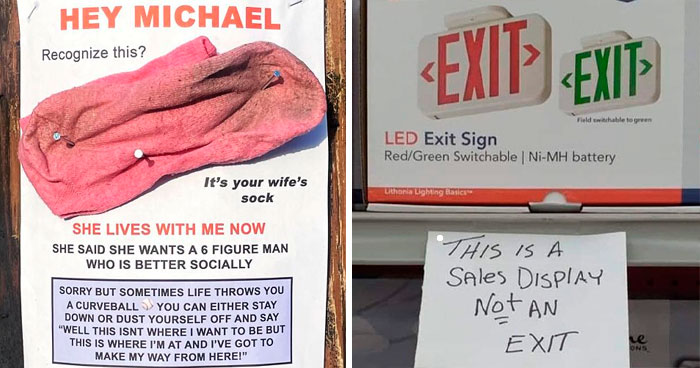 HEY MICHAEL
Recognize this?
It's your wife's
sock
SHE LIVES WITH ME NOW
SHE SAID SHE WANTS A 6 FIGURE MAN
WHO IS BETTER SOCIALLY
SORRY BUT SOMETIMES LIFE THROWS YOU
A CURVEBALL YOU CAN EITHER STAY
DOWN OR DUST YOURSELF OFF AND SAY
"WELL THIS ISNT WHERE I WANT TO BE BUT
THIS IS WHERE I'M AT AND I'VE GOT TO
MAKE MY WAY FROM HERE!"
EXIT
EXIT
Field switchable to green
LED Exit Sign
Red/Green Switchable | Ni-MH battery
Lithonia Lighting Basics™
THIS IS A
SALES DISPLAY
NOT AN
EXIT